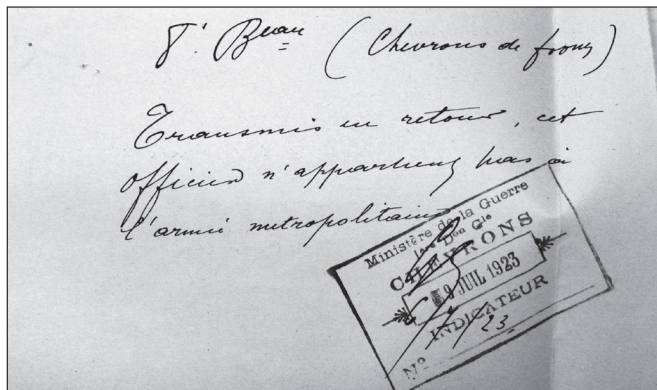 Bean (Chevrons de front)
Transmis en retour, cet
officier n'appartient pas à
l'armée métropolitaine
Ministère de la Guerre
1ère Don Gle
CHEVRONS
9 JUIL 1923
INDICATEUR
No